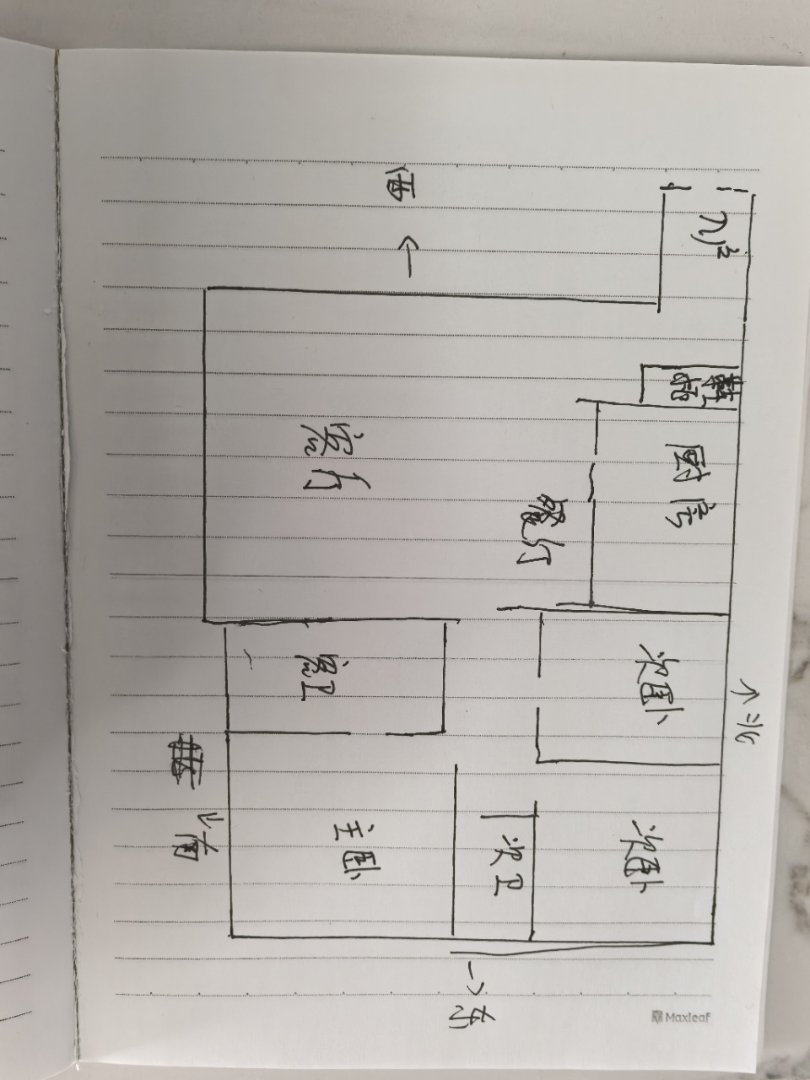 ↑北
鞋柜
厨房
次卧
次卧
餐厅
次卫
→东
西 ←
客厅
客卫
主卧
↓南
Maxleaf